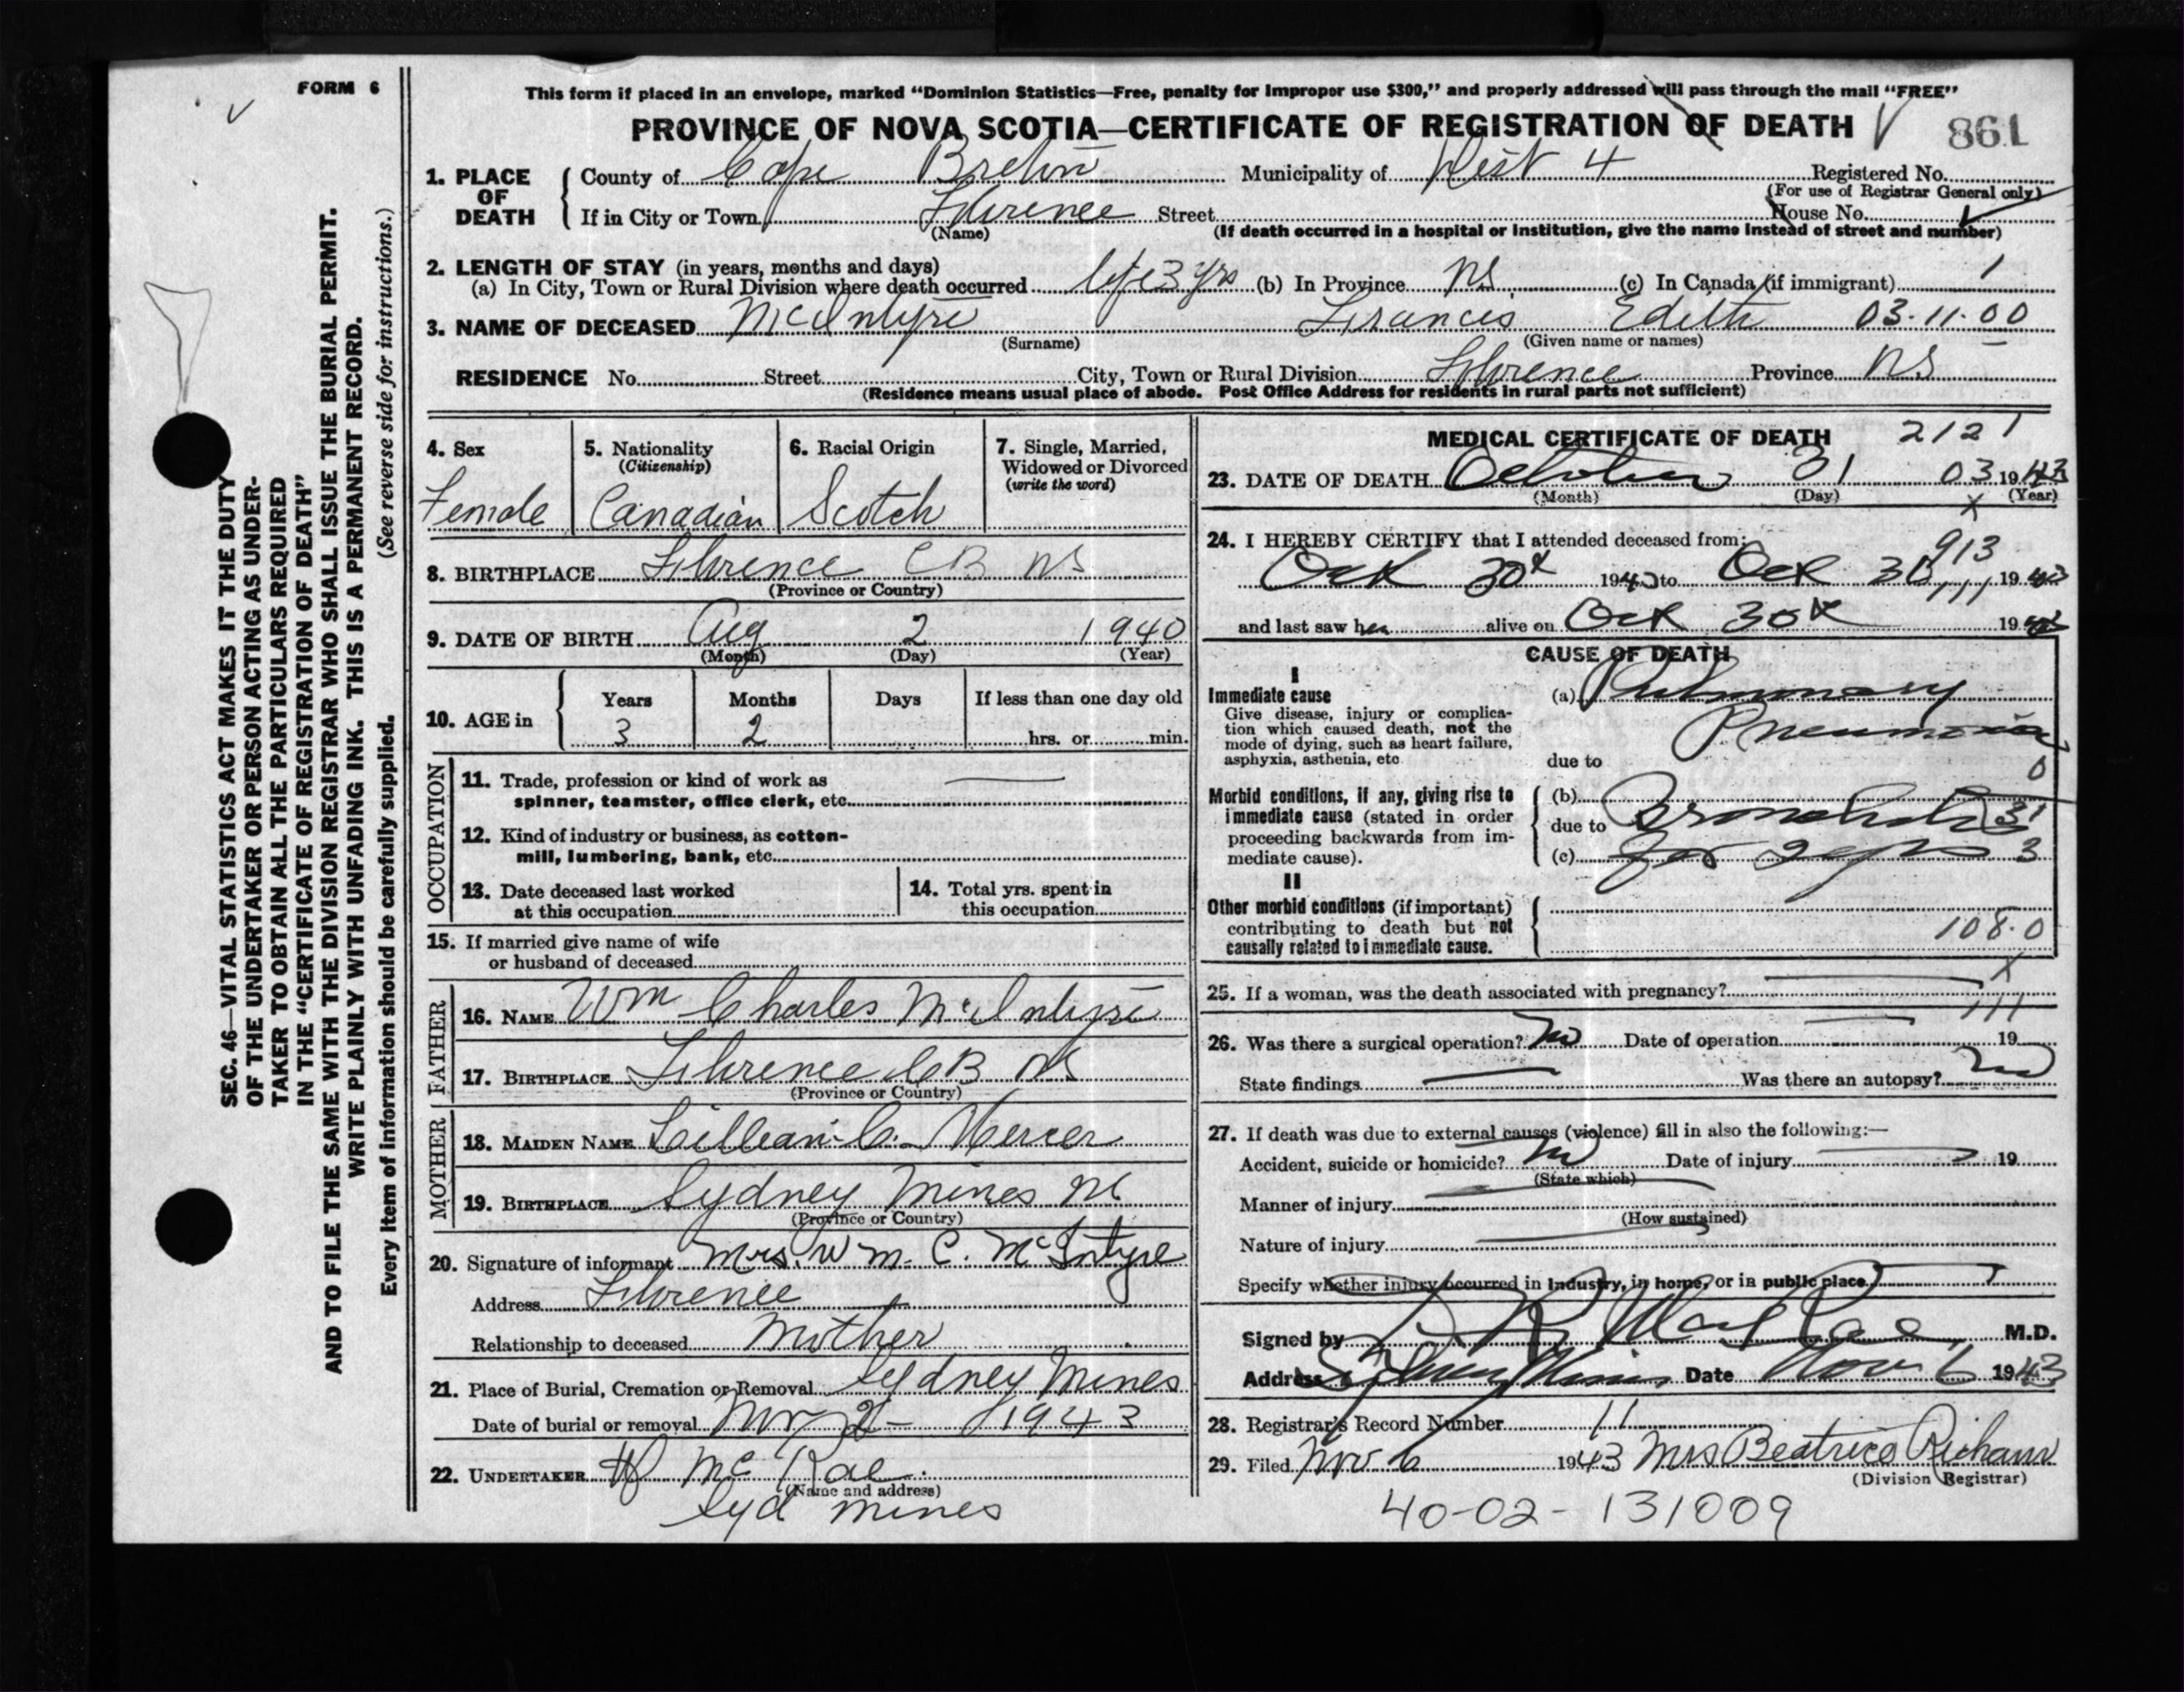 FORM 6
This form if placed in an envelope, marked "Dominion Statistics—Free, penalty for improper use $300," and properly addressed will pass through the mail "FREE"
PROVINCE OF NOVA SCOTIA—CERTIFICATE OF REGISTRATION OF DEATH 861
SEC. 46—VITAL STATISTICS ACT MAKES IT THE DUTY
OF THE UNDERTAKER OR PERSON ACTING AS UNDER-
TAKER TO OBTAIN ALL THE PARTICULARS REQUIRED
IN THE "CERTIFICATE OF REGISTRATION OF DEATH"
AND TO FILE THE SAME WITH THE DIVISION REGISTRAR WHO SHALL ISSUE THE BURIAL PERMIT.
WRITE PLAINLY WITH UNFADING INK. THIS IS A PERMANENT RECORD.
Every item of information should be carefully supplied. (See reverse side for instructions.)
1. PLACE OF DEATH County of Cape Breton Municipality of Dist 4 Registered No.
(For use of Registrar General only)
If in City or Town Florence Street House No.
(Name) (If death occurred in a hospital or institution, give the name instead of street and number)
2. LENGTH OF STAY (in years, months and days)
(a) In City, Town or Rural Division where death occurred life 3 yrs (b) In Province NS (c) In Canada (if immigrant) 1
3. NAME OF DECEASED McIntyre Frances Edith 03-11-00
(Surname) (Given name or names)
RESIDENCE No. Street City, Town or Rural Division Florence Province NS
(Residence means usual place of abode. Post Office Address for residents in rural parts not sufficient)
4. Sex 5. Nationality (Citizenship) 6. Racial Origin 7. Single, Married, Widowed or Divorced (write the word)
Female Canadian Scotch
8. BIRTHPLACE Florence CB NS
(Province or Country)
9. DATE OF BIRTH Aug 2 1940
(Month) (Day) (Year)
10. AGE in Years Months Days If less than one day old
3 2 hrs. or min.
OCCUPATION
11. Trade, profession or kind of work as
spinner, teamster, office clerk, etc.
12. Kind of industry or business, as cotton-
mill, lumbering, bank, etc.
13. Date deceased last worked
at this occupation
14. Total yrs. spent in
this occupation
15. If married give name of wife
or husband of deceased
FATHER
16. NAME Wm Charles McIntyre
17. BIRTHPLACE Florence CB NS
(Province or Country)
MOTHER
18. MAIDEN NAME Lillian C. Mercer
19. BIRTHPLACE Sydney Mines NS
(Province or Country)
20. Signature of informant Mrs. Wm. C. McIntyre
Address Florence
Relationship to deceased Mother
21. Place of Burial, Cremation or Removal Sydney Mines
Date of burial or removal Nov 2 - 1943
22. UNDERTAKER McRae
(Name and address)
Syd Mines
MEDICAL CERTIFICATE OF DEATH 2121
23. DATE OF DEATH October 31 03 1943
(Month) (Day) (Year)
x
24. I HEREBY CERTIFY that I attended deceased from:
913
Oct 30th 1943 to Oct 30 1943
111
and last saw her alive on Oct 30th 1943
CAUSE OF DEATH
I
Immediate cause (a) Pulmonary
Give disease, injury or complica-
tion which caused death, not the
mode of dying, such as heart failure,
asphyxia, asthenia, etc
Pneumonia
due to 0
Morbid conditions, if any, giving rise to
immediate cause (stated in order
proceeding backwards from im-
mediate cause).
(b) Bronchitis 31
due to
(c) for days 3
II
Other morbid conditions (if important)
contributing to death but not
causally related to immediate cause.
108.0
25. If a woman, was the death associated with pregnancy? x
111
26. Was there a surgical operation? No Date of operation 19
State findings Was there an autopsy? No
27. If death was due to external causes (violence) fill in also the following:—
Accident, suicide or homicide? No Date of injury 19
(State which)
Manner of injury
(How sustained)
Nature of injury
Specify whether injury occurred in industry, in home, or in public place
Signed by MacRae M.D.
Address Sydney Mines Date Nov 6 1943
28. Registrar's Record Number 11
29. Filed Nov 6 1943 Mrs Beatrice
(Division Registrar)
40-02-131009